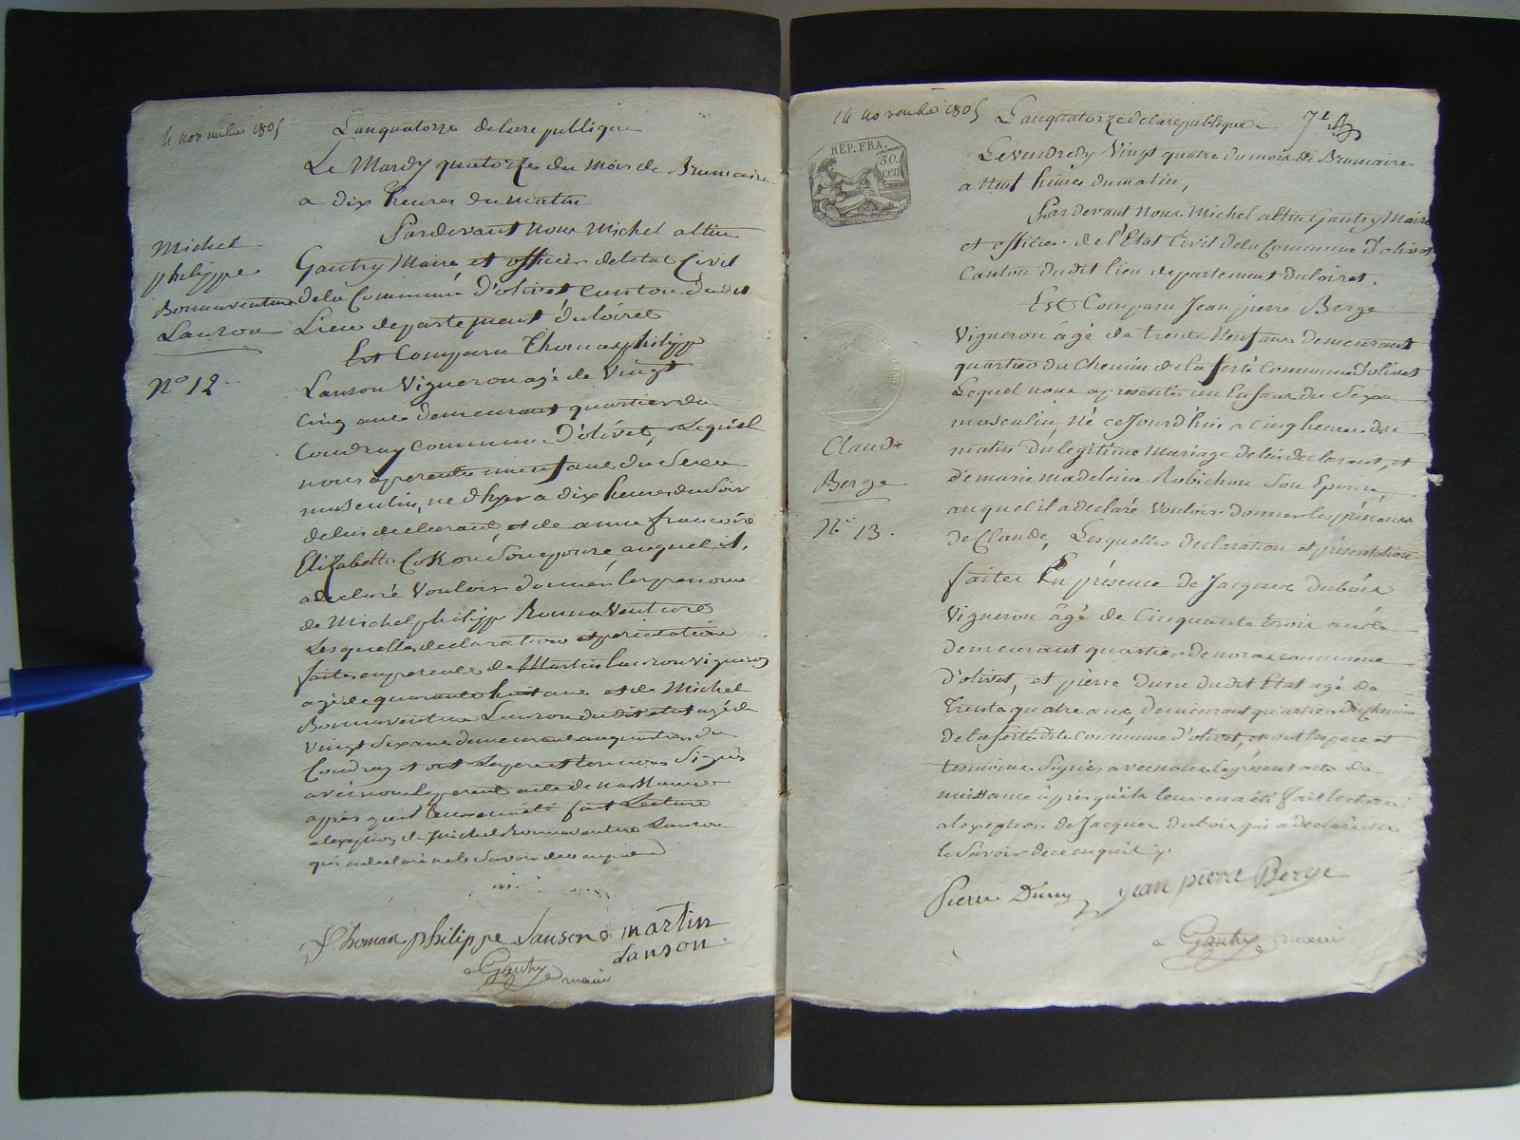 novembre 1805
L'an quatorze de la republique
Le Mardy quatorze du Mois de Brumaire
a dix heures du Matin
Pardevant nous Michel altin
Michel
philippe
Bonnaventure
Lanson
N° 12
Gautry Maire et officier de letat Civil
de la Commune d'olivet canton dudit
Lieu departement du loiret
Est Comparu Thomas philippe
Lanson Vigneron agé de Vingt
Cinq ans demeurant quartier du
Coudray commune D'olivet, Lequel
nous apresenté un enfant du Sexe
masculin, né d'hyer a dix heures du Soir
de lui declarant, et de anne françoise
Elizabeth Son epouse auquel il
a declaré Vouloir donner les prenoms
de Michel philippe Bonnaventure
Lesquelles declaration et presentation
faites en presence de Martin Lanson vigneron
agé de quarante huit ans et de Michel
Bonnaventure Lanson dudit etat agé de
Vingt Six ans demeurant au quartier du
Coudray et ont Le pere et temoins Signés
avec nous le present acte de naissance
apres qu'il leur en a été fait Lecture
a l'exception de Michel Bonnaventure Lanson
qui a declaré ne le Savoir de ce enquis
Thomas philippe Lanson martin
Lanson
Gautry maire
14 novembre 1805
L'an quatorze de la republique
REP. FRA.
50.
cen
Le Vendredy Vingt quatre du mois de Brumaire
a Neuf heures du matin,
Par devant Nous Michel altin Gautry Maire
et officier de l'Etat Civil de la Commune D'olivet
Canton dudit lieu departement du loiret.
Est Comparu Jean pierre Berge
Vigneron âgé de trente Neuf ans demeurant
quartier du Chemin de la ferté Commune d'olivet
Lequel nous a presenté un Enfant du Sexe
masculin, Né ce Jourd'hui a cinq heures du
Claude
Berge
N° 13.
matin du légitime Mariage de lui declarant, et
de marie madeleine Robichon Son Epouse,
auquel il a declaré Vouloir donner les prénoms
de Claude, Lesquelles declaration et présentation
faites En présence de Jacques dubois
Vigneron âgé de Cinquante trois ans
demeurant quartier de commune
d'olivet, et pierre Duru dudit Etat agé de
Trente quatre ans, demeurant quartier du Chemin
de la ferté dite commune d'olivet, et ont le pere et
temoins Signés avec nous le présent acte de
naissance après qu'il leur en a été fait lecture
a l'exception de Jacques dubois qui a déclaré ne
le Savoir de ce enquis
Pierre Duru Jean pierre Berge
Gautry maire